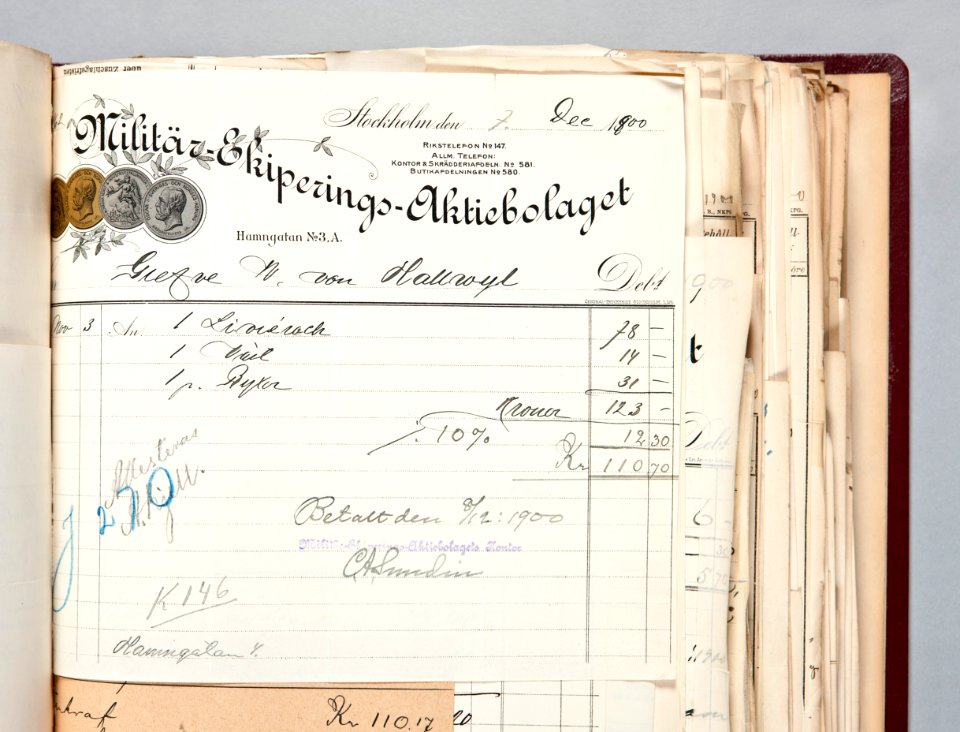 Stockholm den 7. Dec 1900
Militär-Ekiperings-Aktiebolaget
RIKSTELEFON No 147.
ALLM. TELEFON:
KONTOR & SKRÄDDERIAFDELN. No 581.
BUTIKAFDELNINGEN No 580.
Hamngatan No 3, A.
Grefve W. von Hallwyl Debet
Nov 3 An 1 Livrérock 78 —
1 Väst 14 —
1 p. Byxor 31 —
Kronor 123 —
10% 12 30
Kr 110 70
Attesteras
270
Betalt den 8/12 : 1900
Militär-Ekiperings-Aktiebolagets Kontor
CASundin
K 146
Hamngatan 4.
Kr 110.17
20